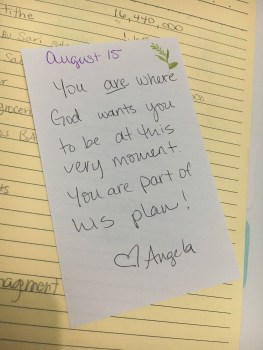 tithe 16,440,000
August 15
You are where
God wants you
to be at this
very moment.
You are part of
his plan!
♡ Angela